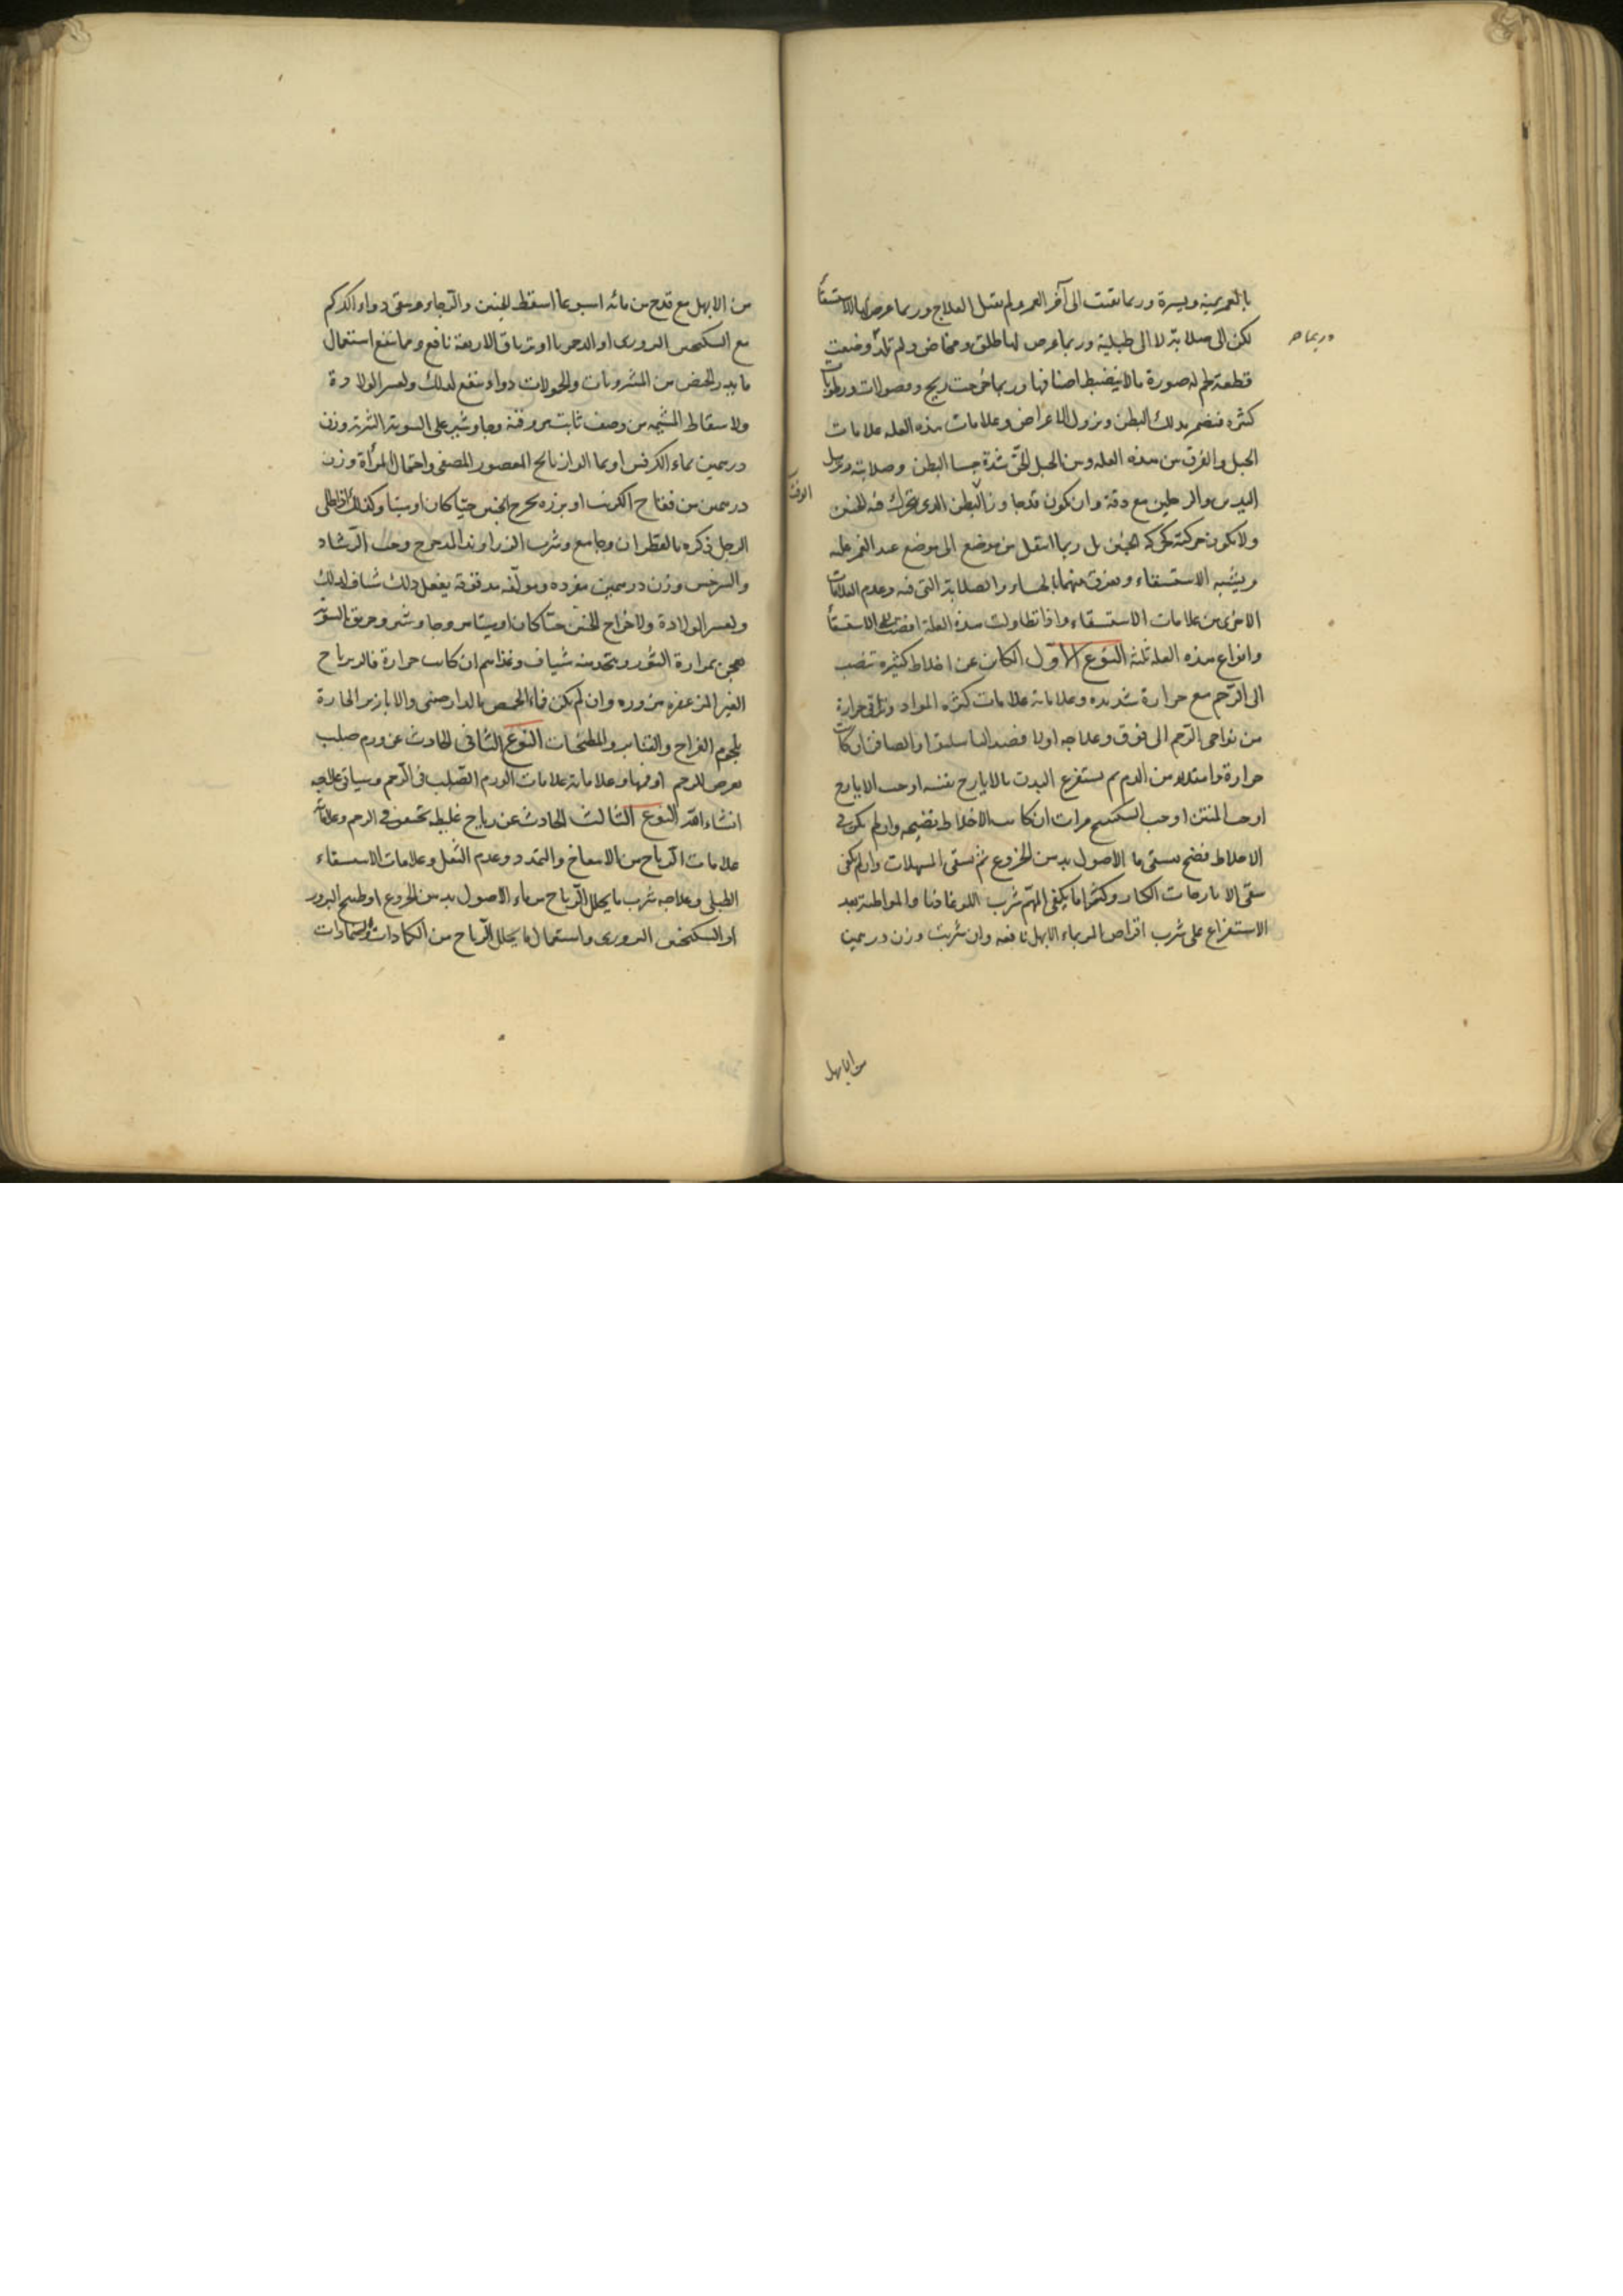 بالغمز يمنة ويسرة وربما بقيت الى آخر العمر ولم تقبل العلاج وربما عرض لها كالاستسقاء
لكن الى صلابة لا الى طبلية وربما عرض لها طلق ومخاض ولم تلد وضعت
قطعة لحم له صورة مالا ينضبط اصنافها وربما خرجت ريح وفضولات ورطوبات
كثيرة فيضمر بذلك البطن وتزول الاعراض وعلامات هذه العلة علامات
الحبل والفرق بين هذه العلة وبين الحبل الحق شدة جسا البطن وصلابته وترهل
اليدين والرجلين مع دقة وان يكون قد جاوز البطن الذي يتحرك فيه الجنين
الوقت
ولا تكون حركته كحركة الجنين بل ربما انتقل من موضع الى موضع عند الغمز عليه
ويشبه الاستسقاء ويفرق بينهما بالجساء والصلابة التي فيه وعدم العلامات
الاخرى من علامات الاستسقاء واذا تطاولت هذه العلة افضت الى الاستسقاء
وانواع هذه العلة ثلثة النوع الاول الكائن عن اخلاط كثيرة تنصب
الى الرحم مع حرارة شديدة وعلاماته علامات كثرة المواد وتراقي حرارة
من نواحي الرحم الى فوق وعلاجه اولا فصد الباسليق او الصافن ان كانت
حرارة وامتلاء من الدم ثم يستفرغ البدن بالايارج نفسه او حب الايارج
او حب المنتن او حب السكبينج مرات ان كانت الاخلاط نضيجة وان لم يكن في
الاخلاط نضج يسقى ما الاصول بدهن الخروع ثم يسقى المسهلات وان لم يكفي
سقى الايارجات الكبار وكثيرا ما يكفي المهم شرب اللوغاذيا والمواظبة بعد
الاستفراغ على شرب اقراص المر بماء الابهل نافعة وان شربت وزن درهمين
من الابهل
من الابهل مع قدح من مائه اسبوعا اسقط الجنين والرجاء وسقى دواء الكركم
مع السكنجبين البزوري او الدحمرتا او ترياق الاربعة نافع ومما ينفع استعمال
ما يدر الحيض من المشروبات والحمولات دواء ينفع لذلك ولعسر الولادة
ولاسقاط المشيمة من وصف ثابت بن قرة وجاوشير على السوية الشربة وزن
درهمين بماء الكرفس او بما الرازيانج المعصور المصفى واحتمال المرأة وزن
درهمين من فقاح الكرنب او بزره يخرج الجنين حيا كان او ميتا وكذلك اذا طلى
الرجل ذكره بالقطران وجامع وشرب الزراوند المدحرج وحب الرشاد
والسرخس وزن درهمين مفردة ومولفة مدقوقة يفعل ذلك شياف لذلك
ولعسر الولادة ولاخراج الجنين حيا كان او ميتا مر وجاوشير وخربق بالسوية
يعجن بمرارة الثور ويتخذ منه شياف وغذاهم ان كانت حرارة فالزيرباج
الغير المزعفرة مزورة وان لم يكن فماء الحمص بالدارصيني والابازير الحارة
بلحوم الفراخ والقنابر والمطجنات النوع الثاني الحادث عن ورم صلب
يعرض للرحم او فمها وعلاماته علامات الورم الصلب في الرحم وسياتي علاجه
انشاء الله النوع الثالث الحادث عن رياح غليظة تحتقن في الرحم وعلاماته
علامات الرياح من الانتفاخ والتمدد وعدم الثقل وعلامات الاستسقاء
الطبلي وعلاجه شرب ما يحلل الرياح من ماء الاصول بدهن الخروع او طبيخ البزور
او السكنجبين البزوري واستعمال ما يحلل الرياح من الكمادات والضمادات